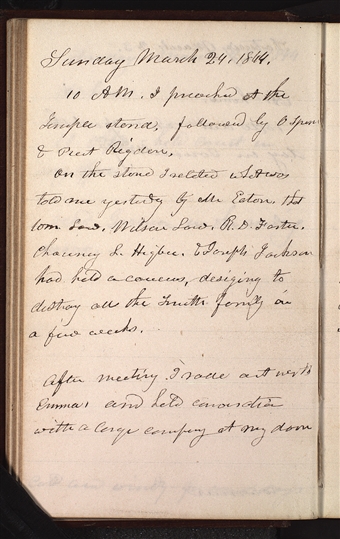 Sunday March 24, 1844.
10 A.M. I preached at the
Temple stand, followed by O Spen
& Prest Rigdon,
On the stand I related what was
told me yesterday by Mr Eaton, that
Wm Law, Wilson Law, R. D. Foster,
Chauncy L. Higbee, & Joseph Jackson
had held a caucus, designing to
destroy all the Smith family in
a few weeks.
After meeting I rode out with
Emma, and held conversation
with a large company at my door